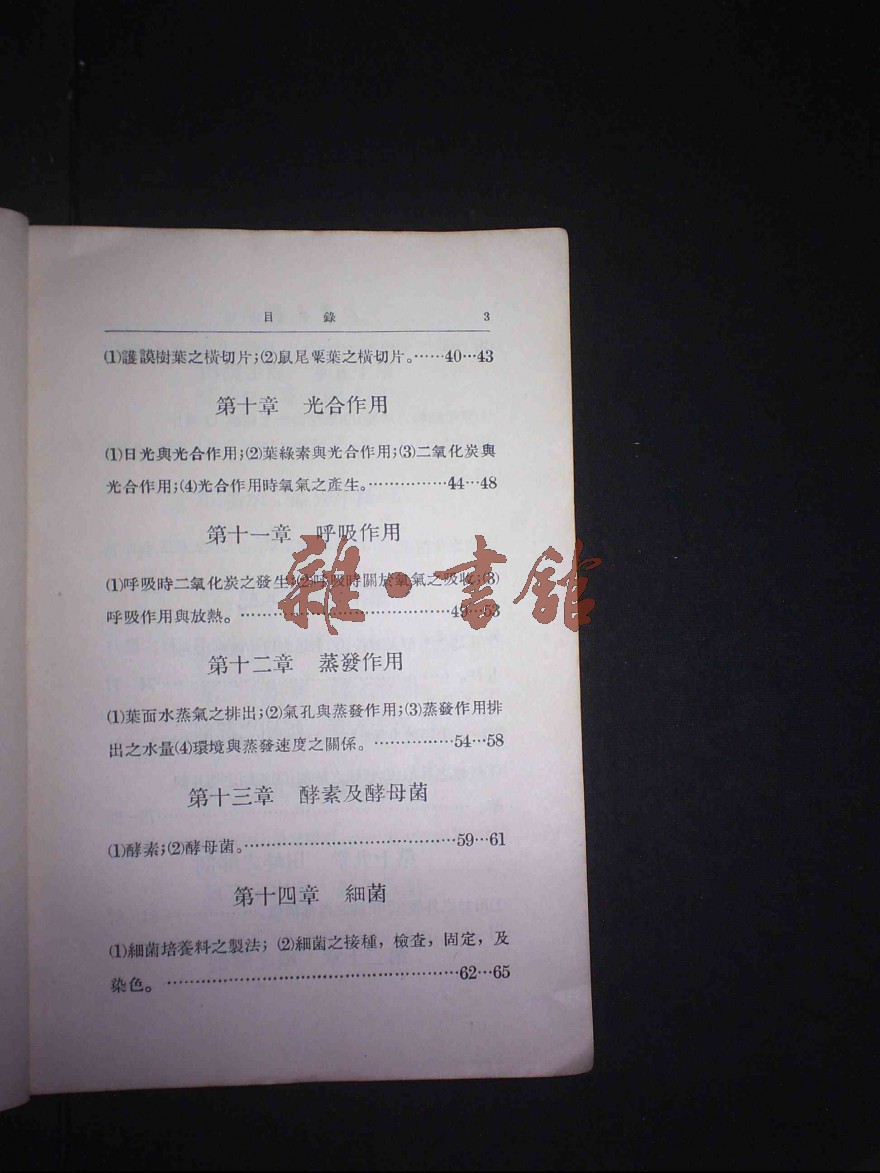 目 錄 3
(1)護謨樹葉之橫切片;(2)鼠尾粟葉之橫切片。……40…43
第十章 光合作用
(1)日光與光合作用;(2)葉綠素與光合作用;(3)二氧化炭與
光合作用;(4)光合作用時氧氣之產生。……………44…48
第十一章 呼吸作用
(1)呼吸時二氧化炭之發生;(2)呼吸時關於氧氣之吸收;(3)
呼吸作用與放熱。………………………………49…53
第十二章 蒸發作用
(1)葉面水蒸氣之排出;(2)氣孔與蒸發作用;(3)蒸發作用排
出之水量(4)環境與蒸發速度之關係。……………54…58
第十三章 酵素及酵母菌
(1)酵素;(2)酵母菌。………………………………59…61
第十四章 細菌
(1)細菌培養料之製法; (2)細菌之接種, 檢查, 固定, 及
染色。 ……………………………………………62…65
雜·書館